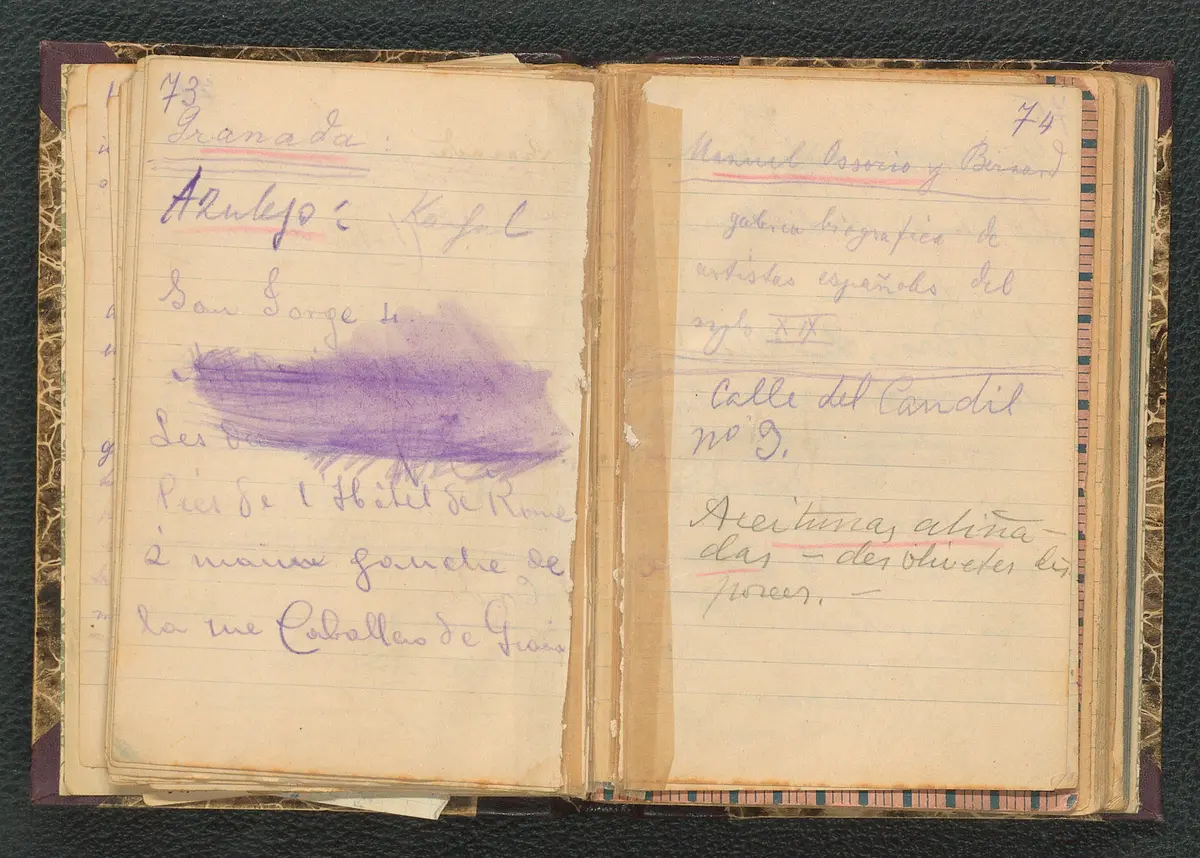 73
Granada :
Azulejo :
San Jorge 4.
Les
Près de l'Hôtel de Rome
à main gauche de
la rue Caballero de Gracia
74
Manuel Ossorio y Bernard
galeria biografica de
artistas españoles del
siglo XIX
Calle del Candil
nº 9.
Aceitunas aliña-
das – des olives